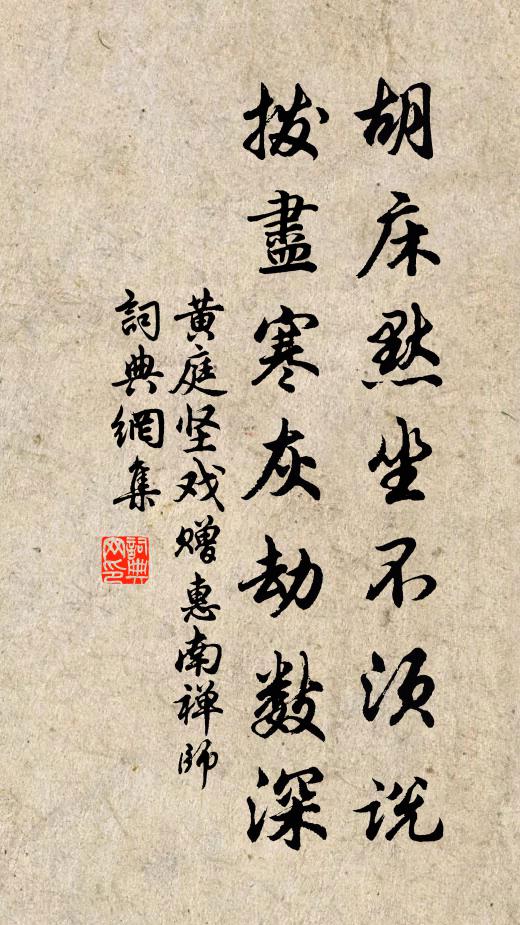 胡床默坐不須說
撥盡寒灰劫數深
黄庭坚戏赠惠南禅師
詞典網集
詞典网印